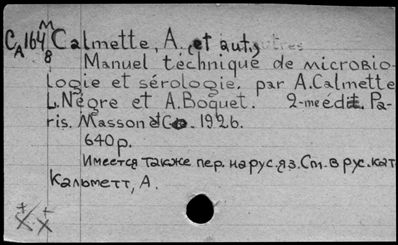 CA164 M Calmette, A. et aut.
8 Manuel technique de microbio-
logie et sérologie, par A.Calmette
L.Nègre et A.Boquet. 2-me édit. Pa-
ris. Masson & Co. 1926.
640 p.
Имеется также пер. на рус. яз. Cm. в рус. кат
Кальметт, А.